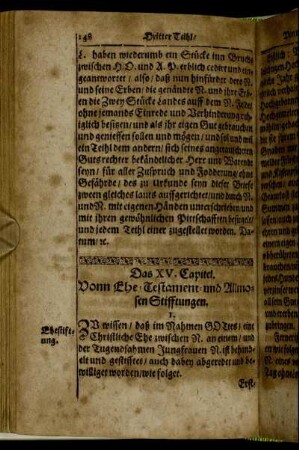 148 Dritter Teihl/
L. haben wiederumb ein Stücke inn Bruche
zwischen H. O. und A. P. erblich cedirt und ein-
geantwortet/ also/ daß nun hinfürder dero N.
und seine Erben/ die genändte N. und ihr Er-
ben die Zwey Stücke Landes auß dem N. Felde
ohne jemands Einrede und Verhinderung ru-
higlich besitzen/ und als ihr eigen Gut gebrauchen
und geniessen sollen und mögen/ und sol und wil
ein Teihl dem andern/ sich seines angenommen
Guts rechter bekändtlicher Herr und Warende
seyn/ für aller Zuspruch und Fodderung/ ohne
Gefährde/ des zu Urkunde seyn dieser Briefe
zween gleiches lauts auffgerichtet und durch N.
und N. mit eigenen Händen unterschrieben und
mit ihren gewöhnlichen Pittschafften besiegelt/
und jedem Teihl einer zugestellet worden. Da-
tum/ ꝛc.
Das XV. Capitel.
Vonn Ehe-Testament und Allmo-
sen Stifftungen.
1.
Ehestift-
ung.
ZU wissen/ daß im Nahmen GOttes/ eine
Christliche Ehe zwischen N. an einem/ und
der Tugendsahmen Jungfrauen N. ist behand-
elt und gestifftet/ auch dabey abgeredet und be-
williget worden/ wie folget.
Erst-